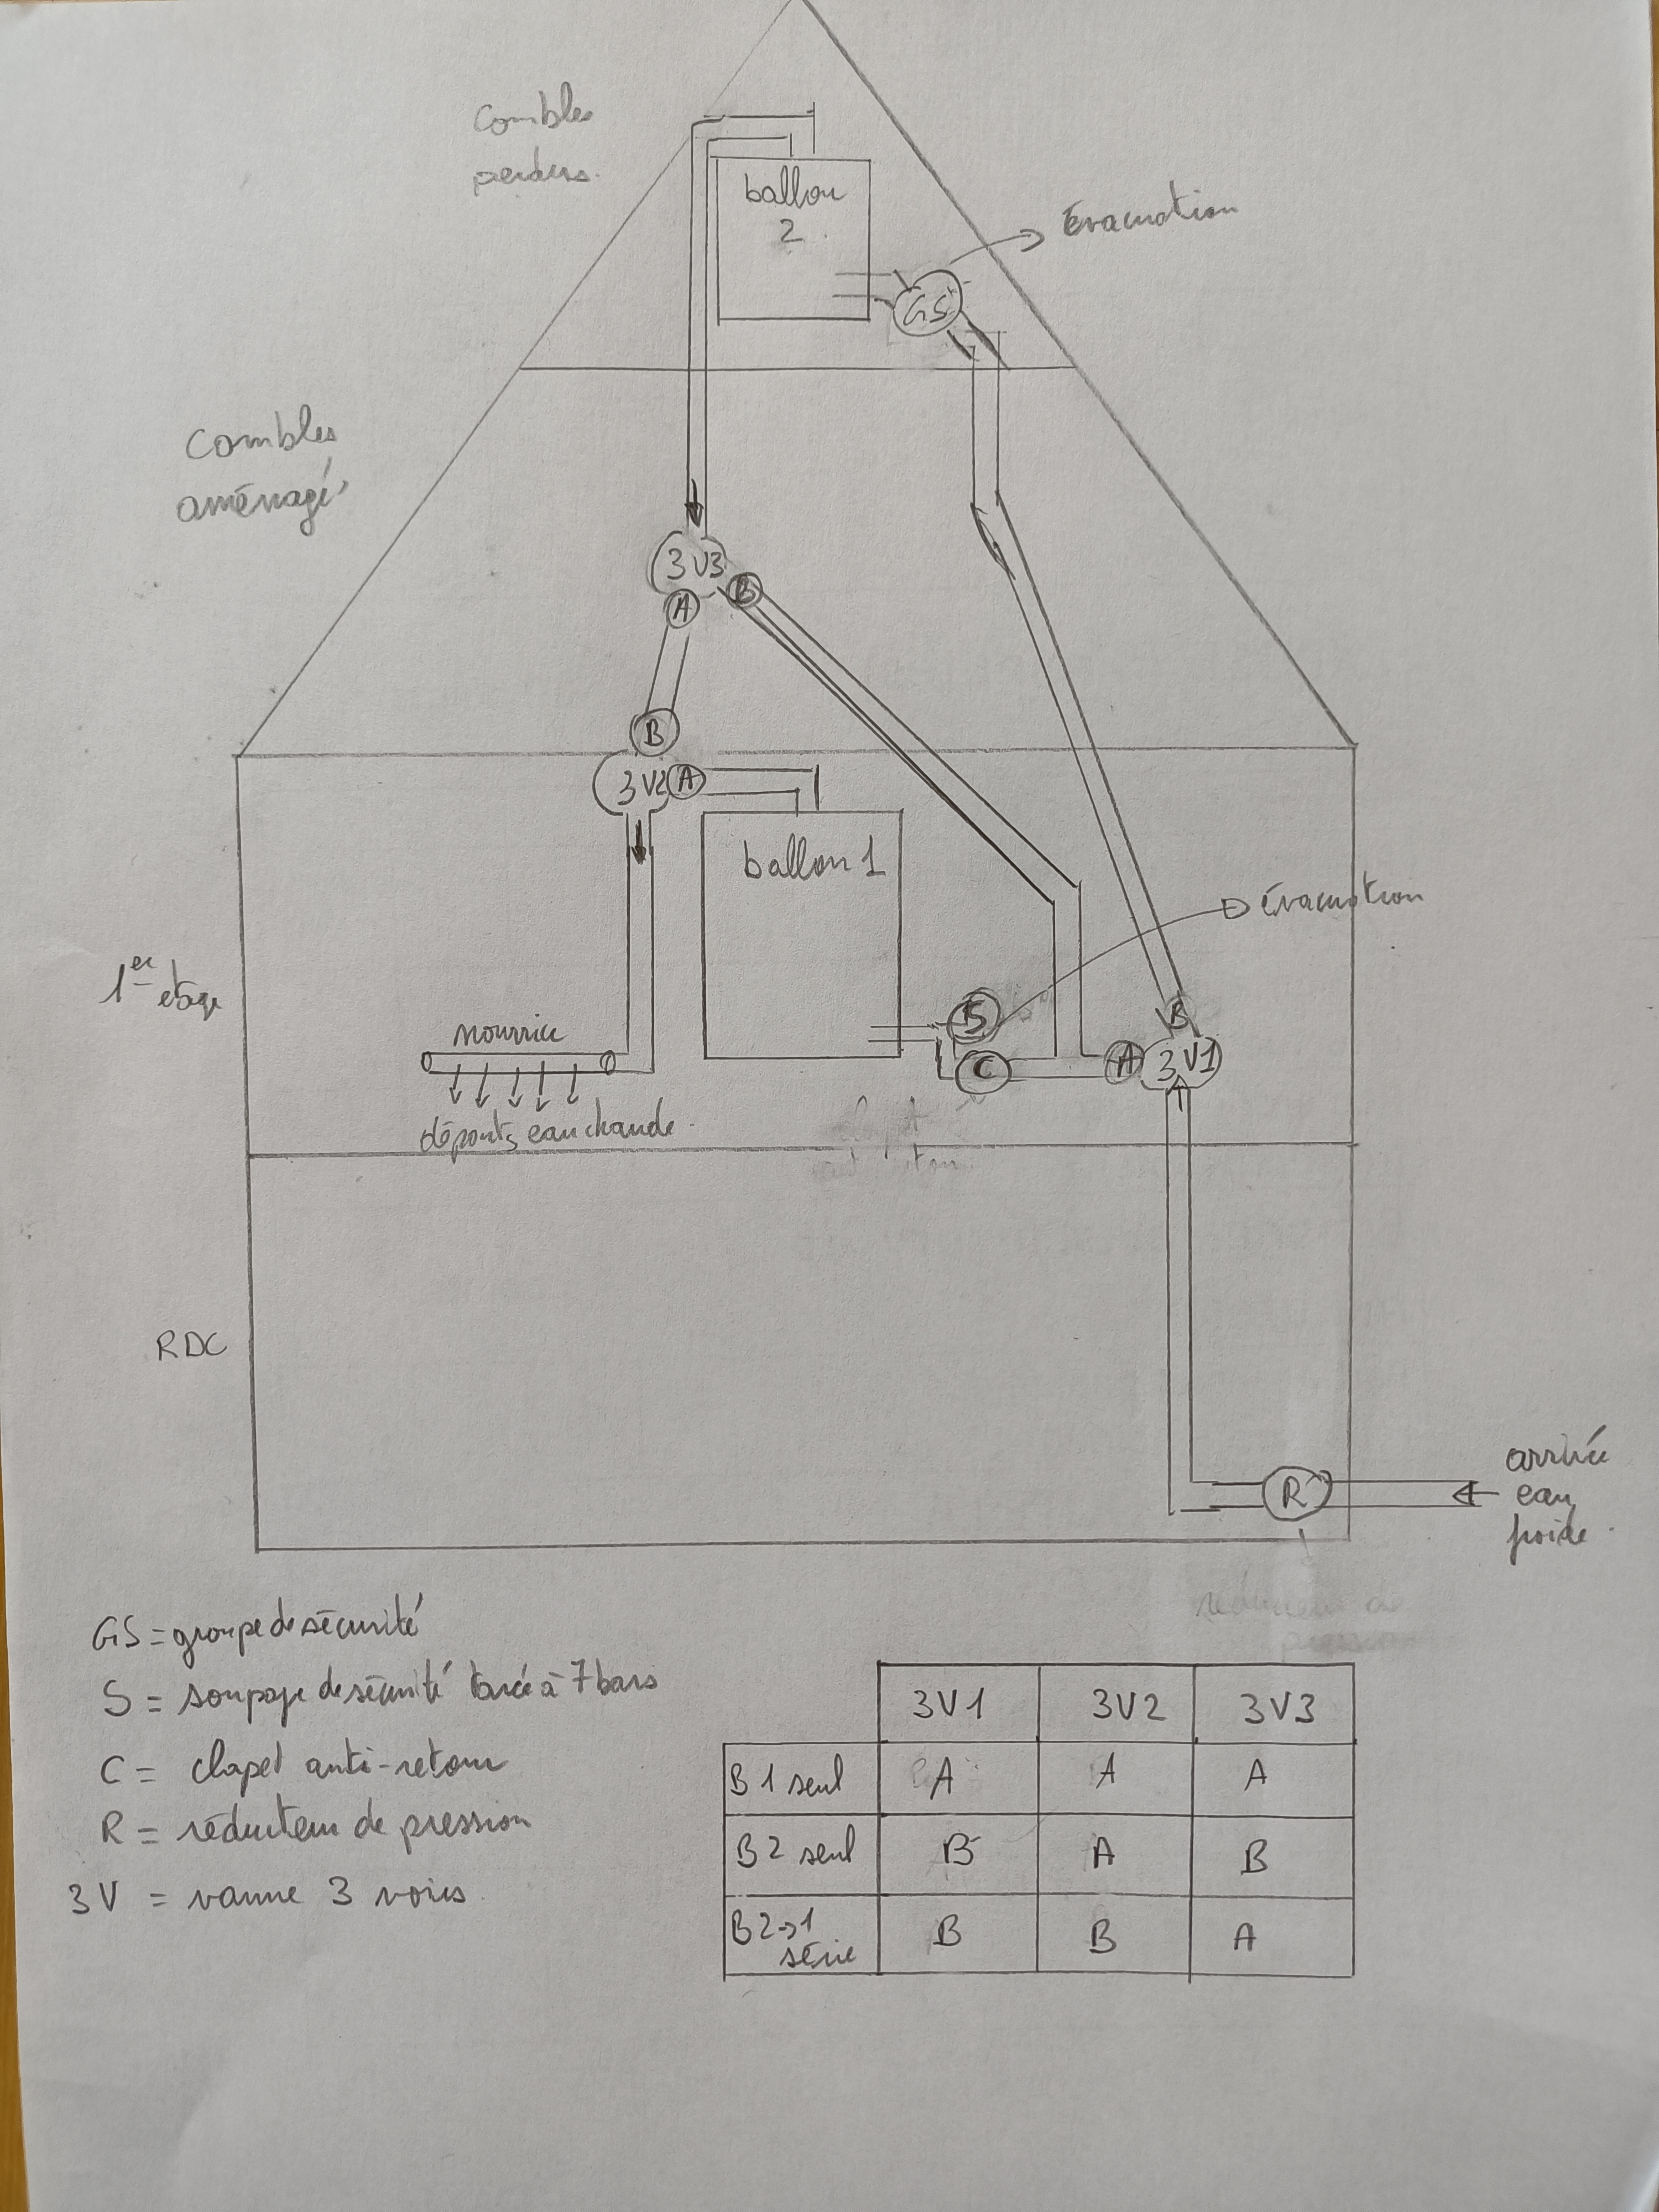 Combles
perdus.
ballon
2
évacuation
GS
Combles
aménagés
3V3
A
B
B
3V2
A
ballon 1
évacuation
1er
étage
S
B
nourrice
C
A
3V1
départs eau chaude.
RDC
R
arrivée
eau
froide.
réducteur de
pression
GS = groupe de sécurité
S = soupape de sécurité tarée à 7 bars
C = clapet anti-retour
R = réducteur de pression
3V = vanne 3 voies.
3V1 3V2 3V3
B1 seul A A A
B2 seul B A B
B2→1 B B A
série